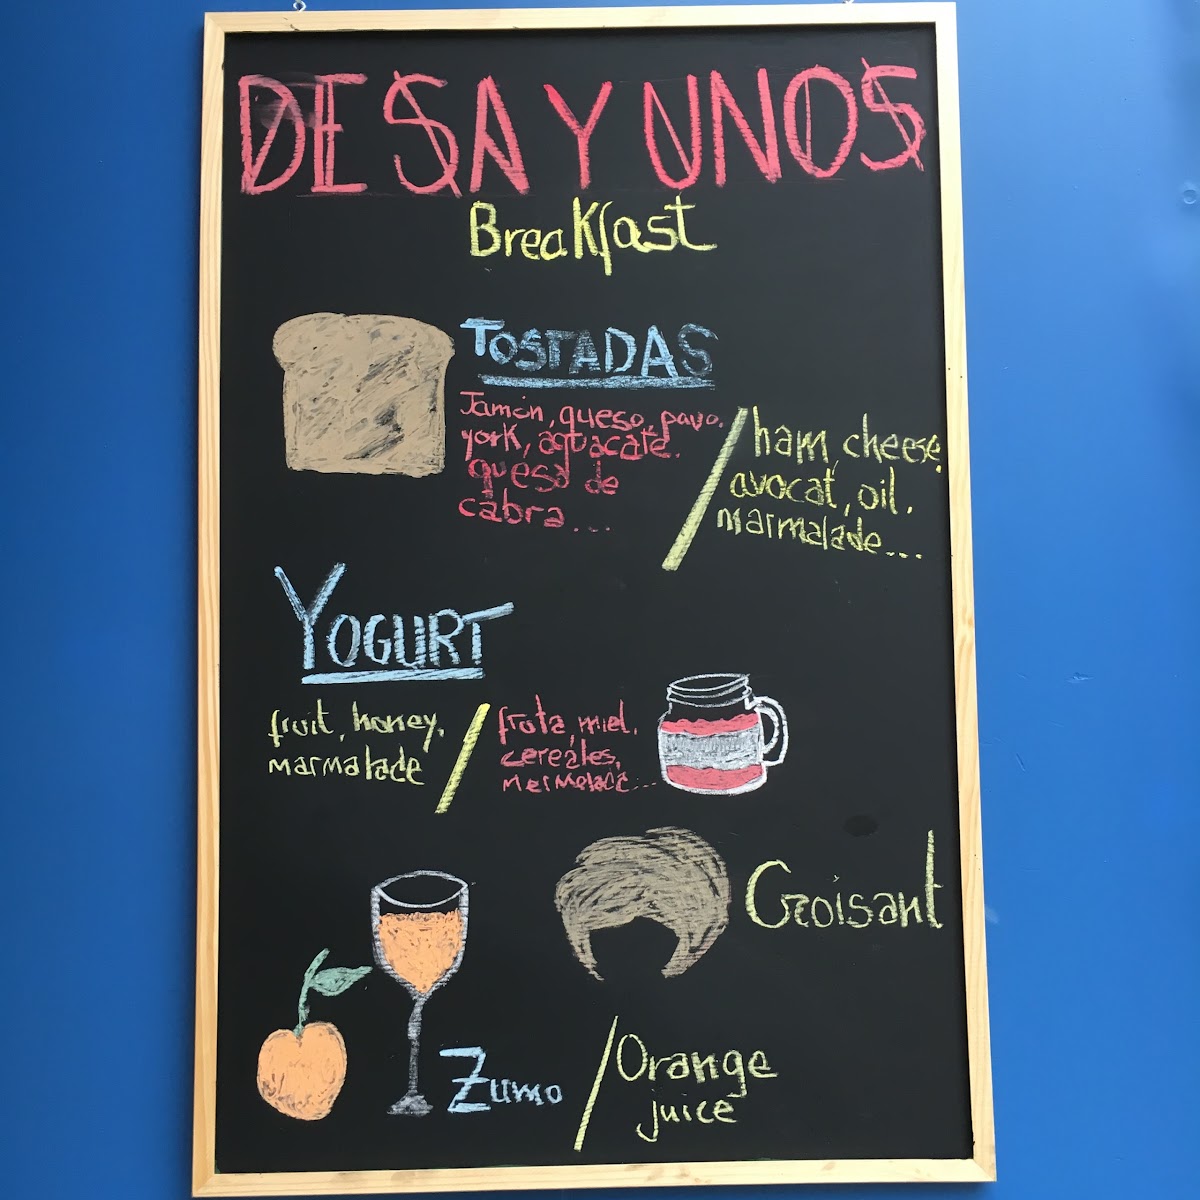 DESAYUNOS
Breakfast
TOSTADAS
Jamón, queso, pavo.
york, aguacate.
queso de
cabra...
/ ham, cheese,
avocat, oil.
marmalade...
YOGURT
fruit, honey,
marmalade
/ fruta, miel,
cereales,
mermelada...
Croisant
Zumo / Orange
juice